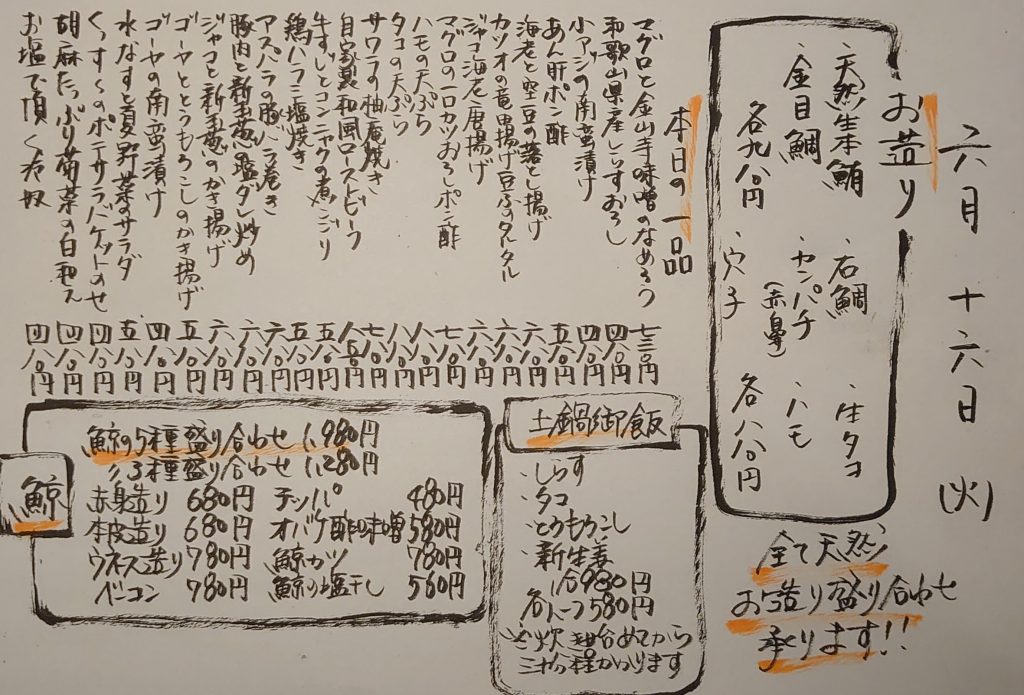 六月十六日(火)
お造り
・天然生本鮪 ・石鯛 ・生タコ
・金目鯛 ・カンパチ(赤鼻) ・ハモ
各九八〇円 ・穴子 各八八〇円
全て天然
お造り盛り合わせ
承ります!!
本日の一品
マグロと金山寺味噌のなめろう 七三〇円
和歌山県産しらすおろし 四八〇円
小アジの南蛮漬け 四八〇円
あん肝ポン酢 五八〇円
海老と空豆の落とし揚げ 六八〇円
カツオの竜田揚げ豆ふのタルタル 六八〇円
ジャコ海老唐揚げ 六八〇円
マグロの一口カツおろしポン酢 七八〇円
ハモの天ぷら 八八〇円
タコの天ぷら 八八〇円
サワラの柚庵焼き 七八〇円
自家製和風ローストビーフ 八五〇円
牛すじとコンニャクの煮こごり 五八〇円
鶏ハラミ塩焼き 五八〇円
アスパラの豚バラ巻き 六八〇円
豚肉と新玉葱の塩ダレ炒め 六八〇円
ジャコと新玉葱のかき揚げ 六八〇円
ゴーヤととうもろこしのかき揚げ 五八〇円
ゴーヤの南蛮漬け 四八〇円
水なすと夏野菜のサラダ 五八〇円
のポテサラバケットのせ 四八〇円
胡麻たっぷり菊菜の白和え 四八〇円
お塩で頂く冷奴 四八〇円
土鍋御飯
・しらす
・タコ
・とうもろこし
・新生姜
一合980円
各ハーフ580円
※炊き始めてから
三十分程かかります
鯨
鯨の5種盛り合わせ 1,980円
〃3種盛り合わせ 1,280円
赤身造り 680円 チッパ 480円
本皮造り 680円 オバケ酢味噌 580円
ウネス造り 780円 鯨カツ 780円
ベーコン 780円 鯨の塩干し 560円